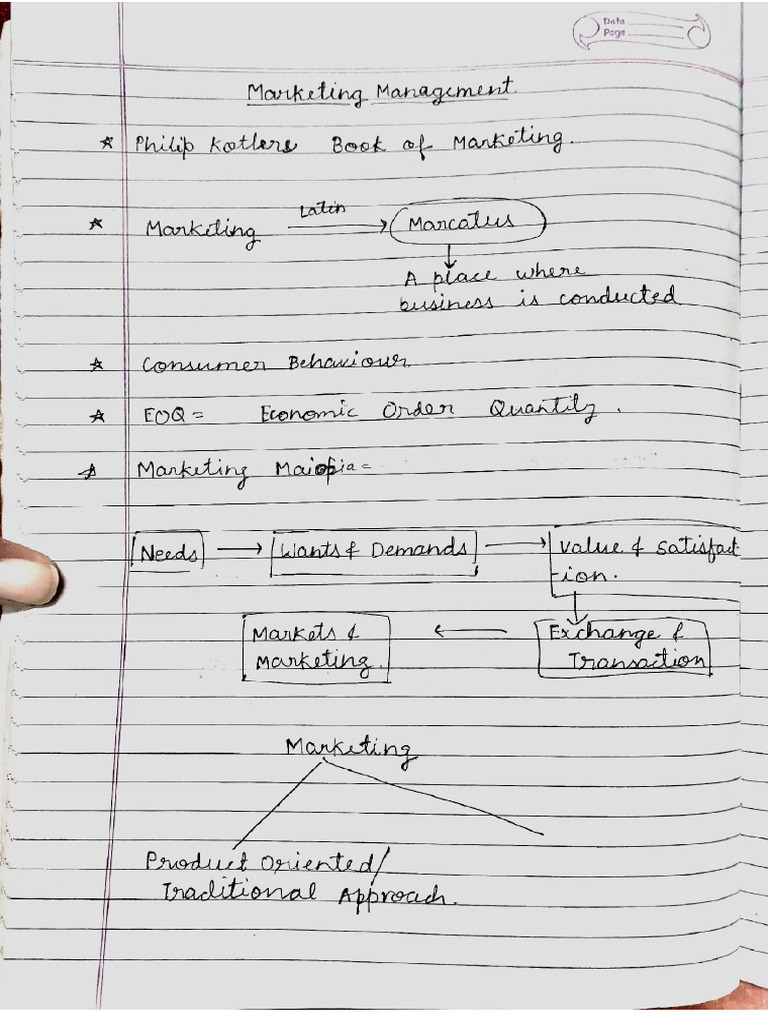 Date
Page
Marketing Management
* Philip Kotlers Book of Marketing.
* Marketing Latin → Marcatus
A place where
business is conducted
* Consumer Behaviour.
* EOQ = Economic Order Quantity.
* Marketing Maiopia =
Needs → Wants & Demands → Value & Satisfact
-ion.
Markets & ← Exchange &
Marketing. Transaction
Marketing
Product Oriented/
Traditional Approach.